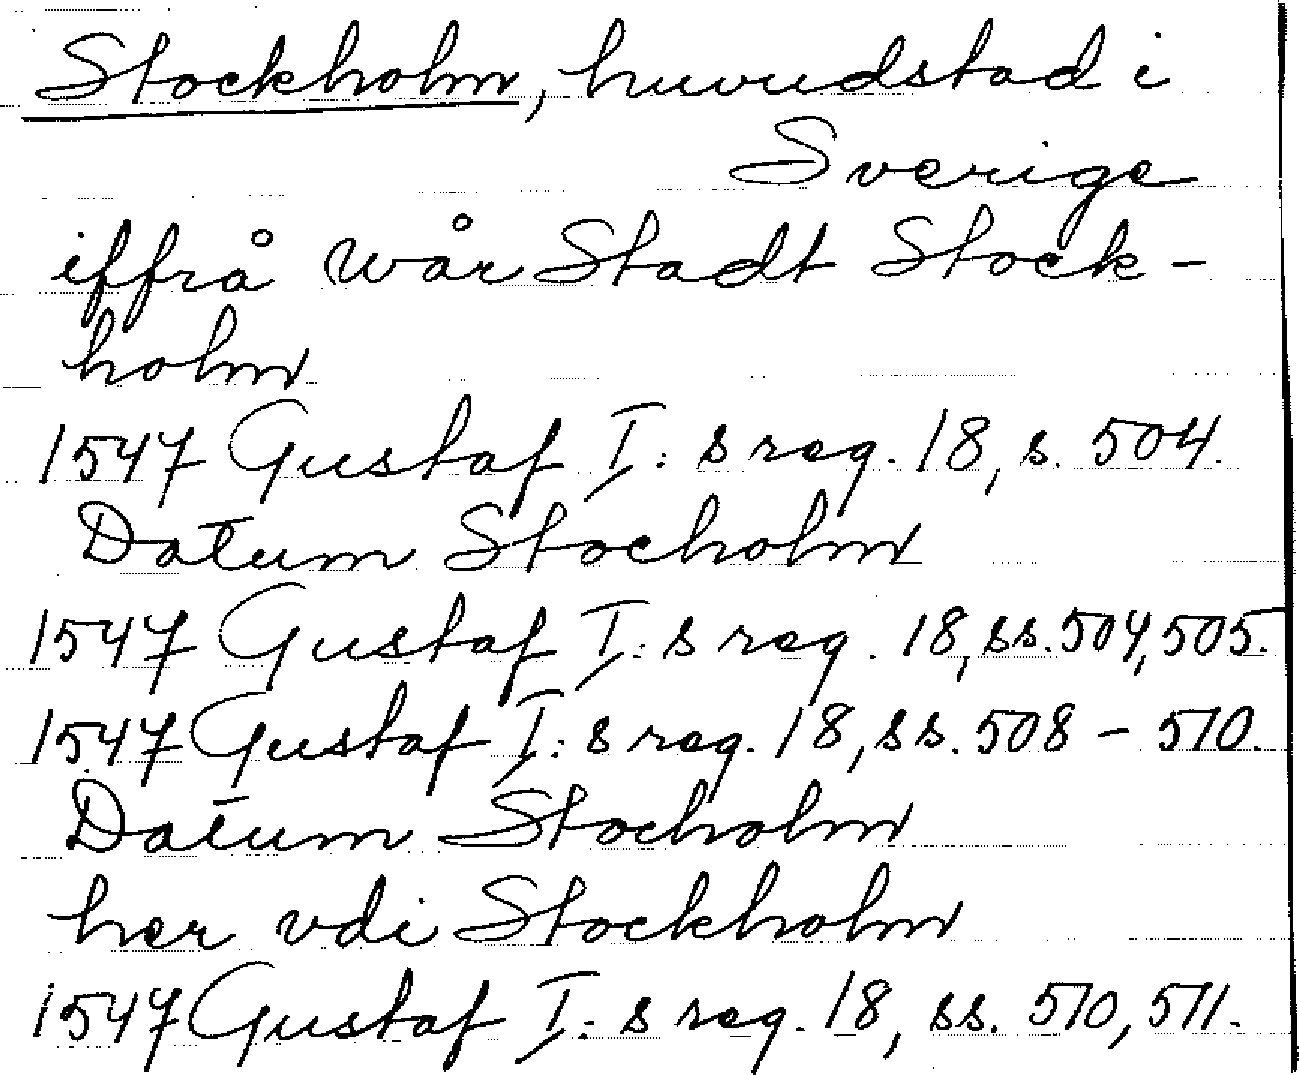 Stockholm, huvudstad i
Sverige
iffrå wår Stadt Stock-
holm
1547 Gustaf I:s reg. 18, s. 504.
Datum Stocholm
1547 Gustaf I:s reg. 18, ss. 504, 505.
1547 Gustaf I:s reg. 18, ss. 508 - 510.
Datum Stocholm
her vdi Stockholm
1547 Gustaf I:s reg. 18, ss. 510, 511.